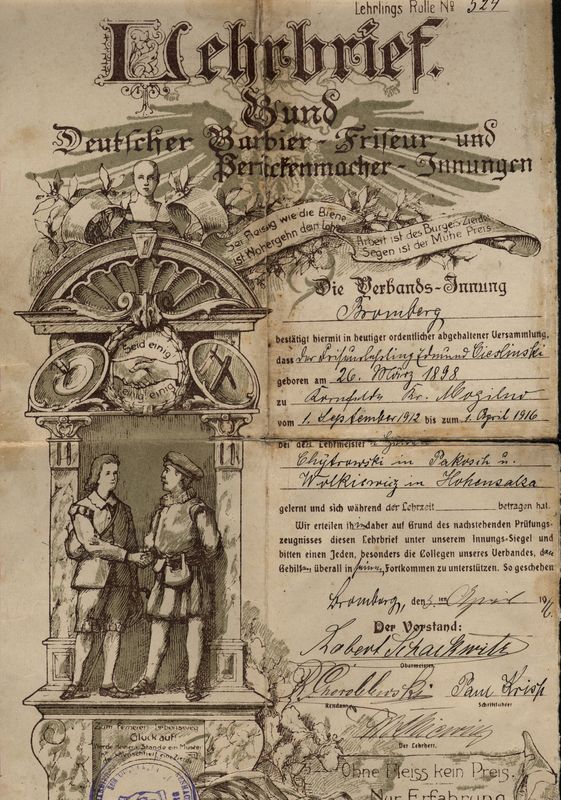 Lehrlings Rolle № 524
Lehrbrief.
Bund
Deutscher Barbier-Friseur- und
Perückenmacher-Innungen
Sei fleissig wie die Biene
Arbeit ist des Bürgers Zierde
Segen ist der Mühe Preis
Die Verbands-Innung
Bromberg
bestätigt hiermit in heutiger ordentlicher abgehaltener Versammlung,
dass der Friseurlehrling Edmund Cieslinski
geboren am 26. März 1898
zu Kornfelde Kr. Mogilno
vom 1. September 1912 bis zum 1. April 1916
bei den Lehrmeister
Chytrowski in Pakosch u.
Wolkiewicz in Hohensalza
gelernt und sich während der Lehrzeit betragen hat.
Wir erteilen ihm daher auf Grund des nachstehenden Prüfungs-
zeugnisses diesen Lehrbrief unter unserem Innungs-Siegel und
bitten einen Jeden, besonders die Collegen unseres Verbandes, den
Gehilfen überall in seinem Fortkommen zu unterstützen. So geschehen
Bromberg, den 5. ten April 1916
Der Vorstand:
Robert
Obermeister
Paul Krisp
Rendant
Schriftführer
Der Lehrherr.
Seid einig
einig einig
Zum ferneren Lebensweg
Glückauf!
Ohne Fleiss kein Preis.
Nur Erfahrung